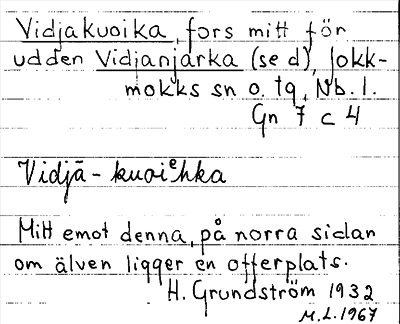 Vidjakuoika, fors mitt för
udden Vidjanjarka (se d), Jokk-
mokks sn o. tg, Nb. l.
Gn 7 c 4
Vidjā-kuoiᵉhka
Mitt emot denna, på norra sidan
om älven ligger en offerplats.
H. Grundström 1932
M.L. 1967